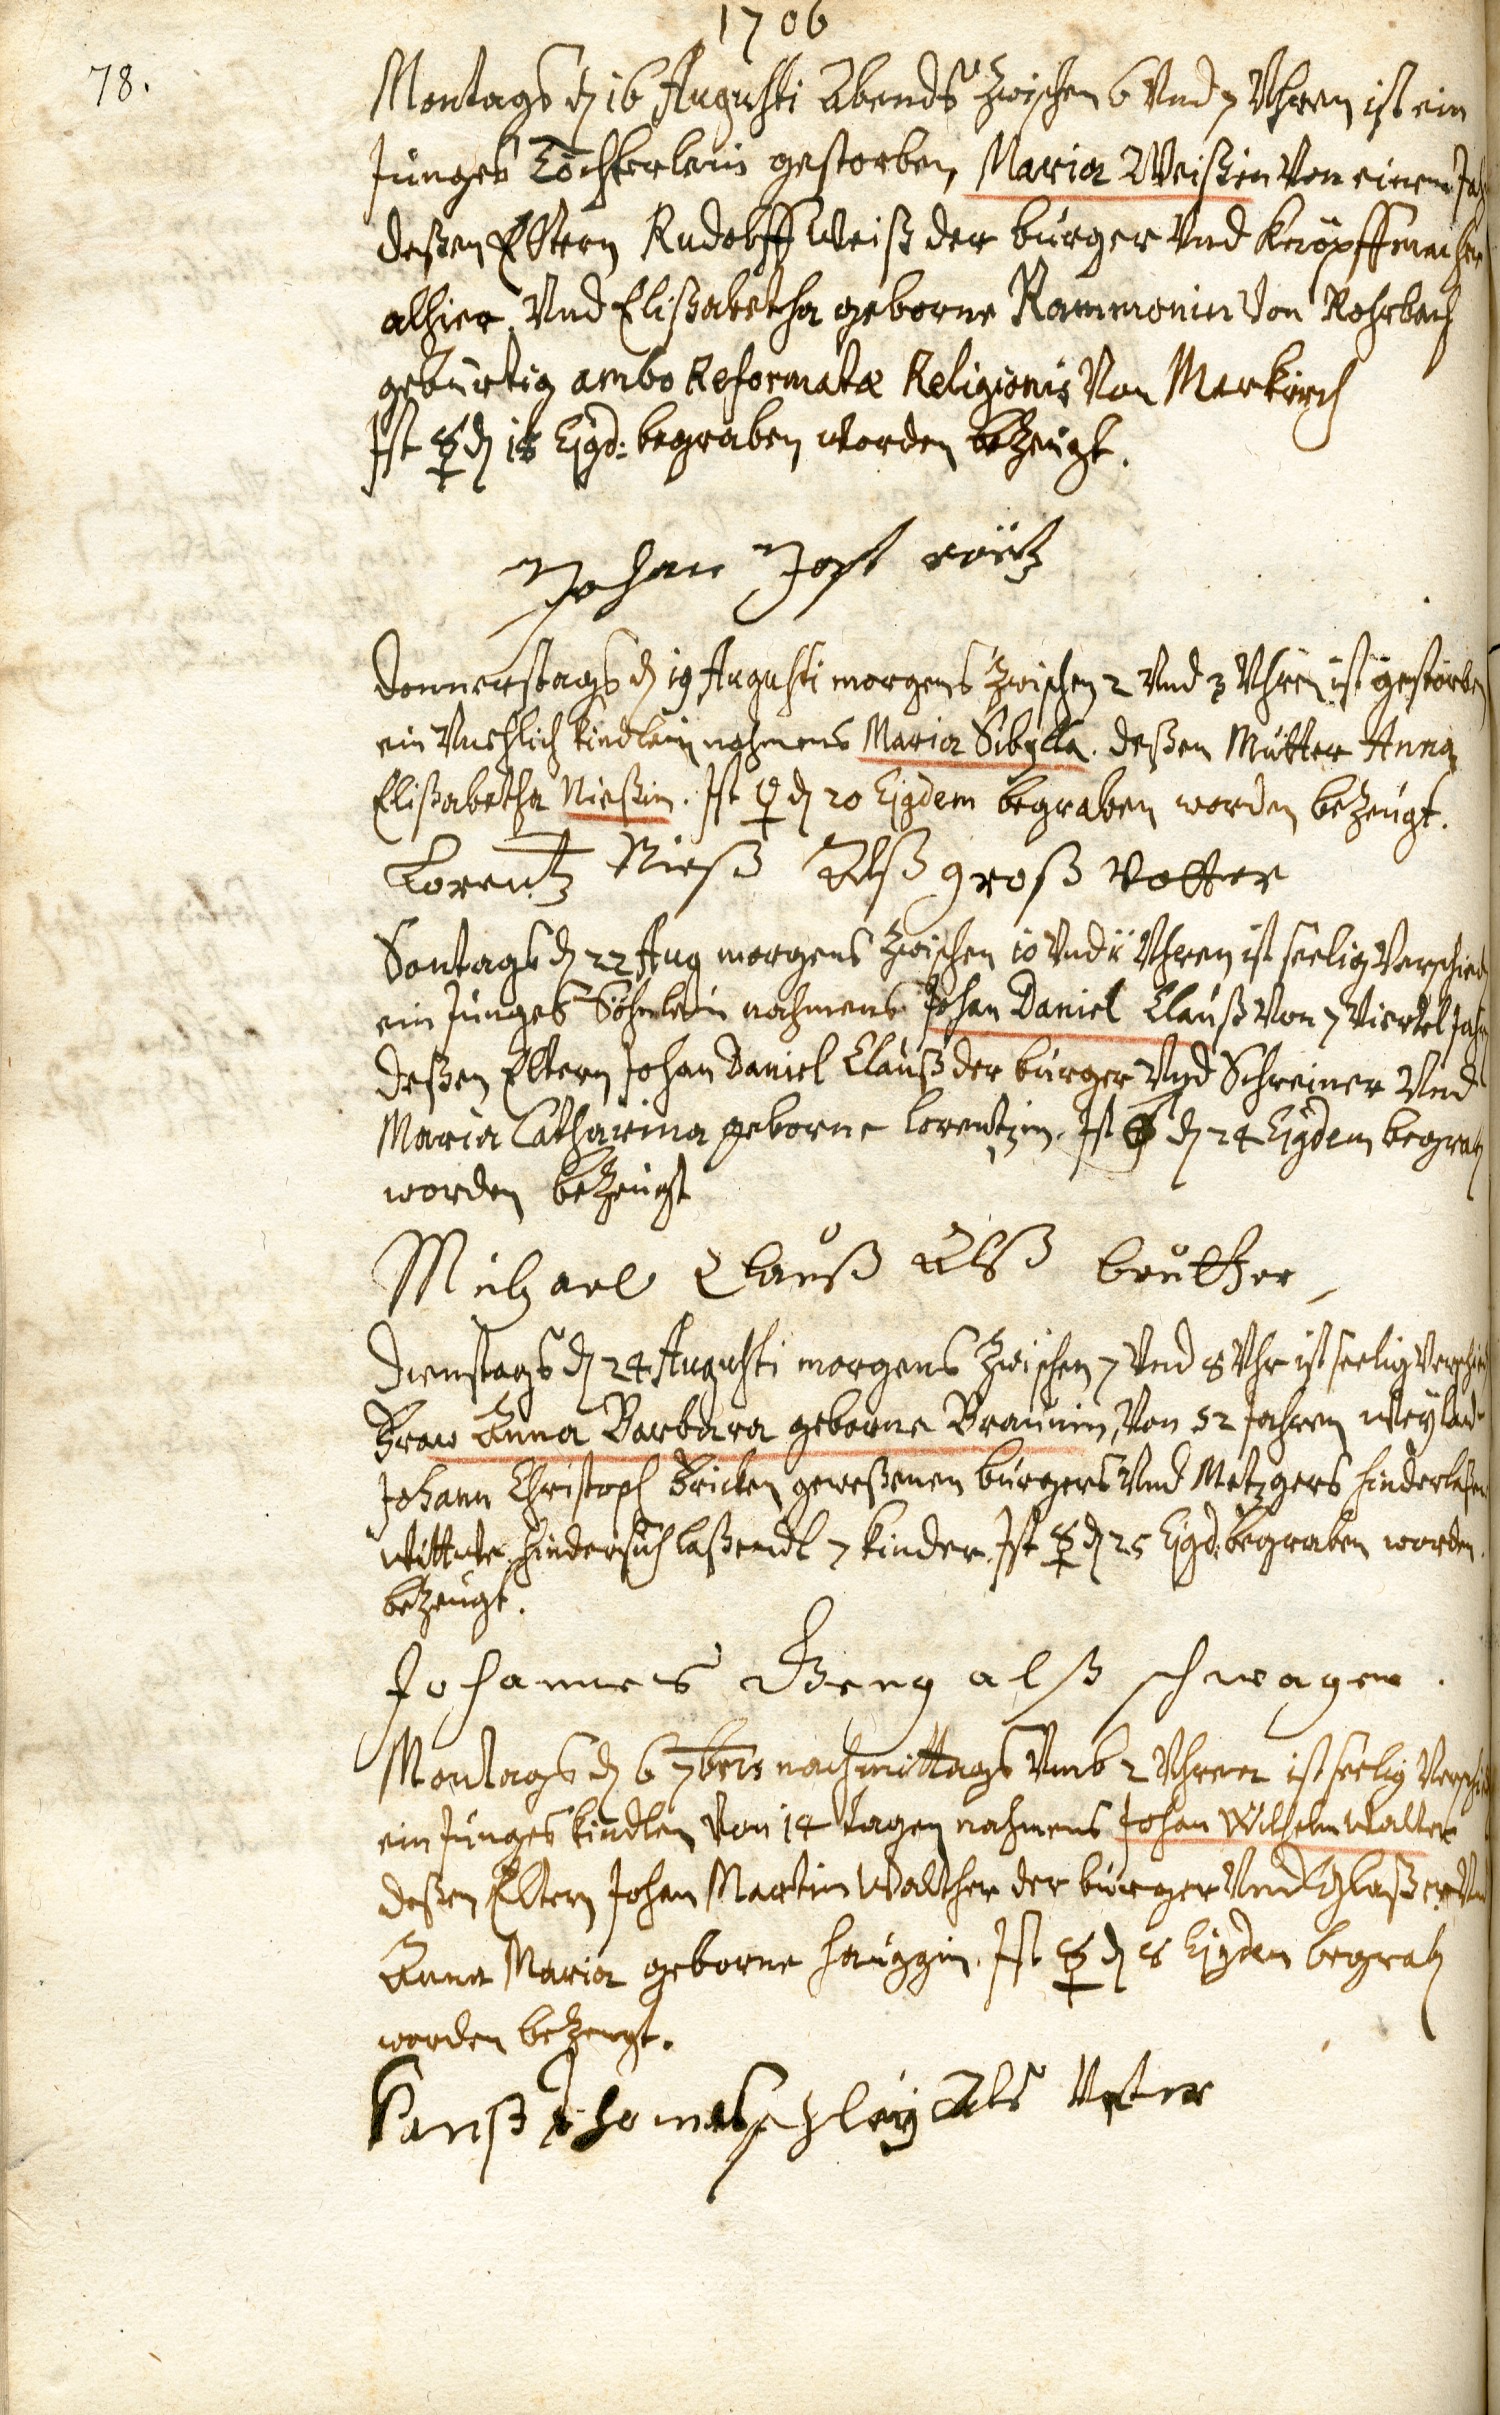 1706
78.
Montags d 16 Augusti Abends zwischen 6 Vnd 7 Vhren ist ein
Junges Töchterlein gestorben, Maria Weißin Von einem Jahr
deßen Eltern Rudolff Weiß der burger Vnd Knöpffmacher
alhier Vnd Elißabetha geborne Rammonin Von Rohrbach
gebürtig ambo Reformatæ Religionis Von Markirch
Ist ☿ d 18 Ejgd: begraben worden bezeugt.
Johan Jost
Donnerstags d 19 Augusti morgens zwischen 2 Vnd 3 Vhren ist gestorben
ein Vnehlich kindlein nahmens Maria Sibylla. deßen Mutter Anna
Elißabetha Nießin. Ist ♀ d 20 Ejgdem begraben worden bezeugt.
Lorentz Nieß Alß groß Vatter
Sontags d 22 Aug morgens zwischen 10 Vnd 11 Vhren ist seelig Verschieden
ein Junges Söhnlein nahmens Johan Daniel Clauß Von 7 Viertel Jahr
deßen Eltern Johan Daniel Clauß der burger Vnd Schreiner Vnd
Maria Catharina geborne Lorentzin. Ist d 24 Ejgdem begrab
worden bezeugt
Michael Clauß Alß brutter
Dienstags d 24 Augusti morgens zwischen 7 Vnd 8 Vhr ist seelig Verschied
Fraw Anna Barbara geborne Braunin, Von 52 Jahren Weyland
Johann Christoph Fricken geweßenen burgers Vnd Metzgers hinderlaßene
Wittwe. hindersich laßendt 7 kinder. Ist ☿ d 25 Ejgd: begraben worden.
bezeugt.
Johannes Geng alß schwager.
Montags d 6 7bris nachmittags Vmb 2 Vhren ist seelig Verschied
ein Junges kindlen Von 14 tagen nahmens Johan Wilhelm Walter
deßen Eltern Johan Martin Walther der burger Vnd Glaßer Vnd
Anna Maria geborne hauggin. Ist ☿ d 8 Ejgdem begrab
worden bezeugt.
Hanß Thomas Als Vetter